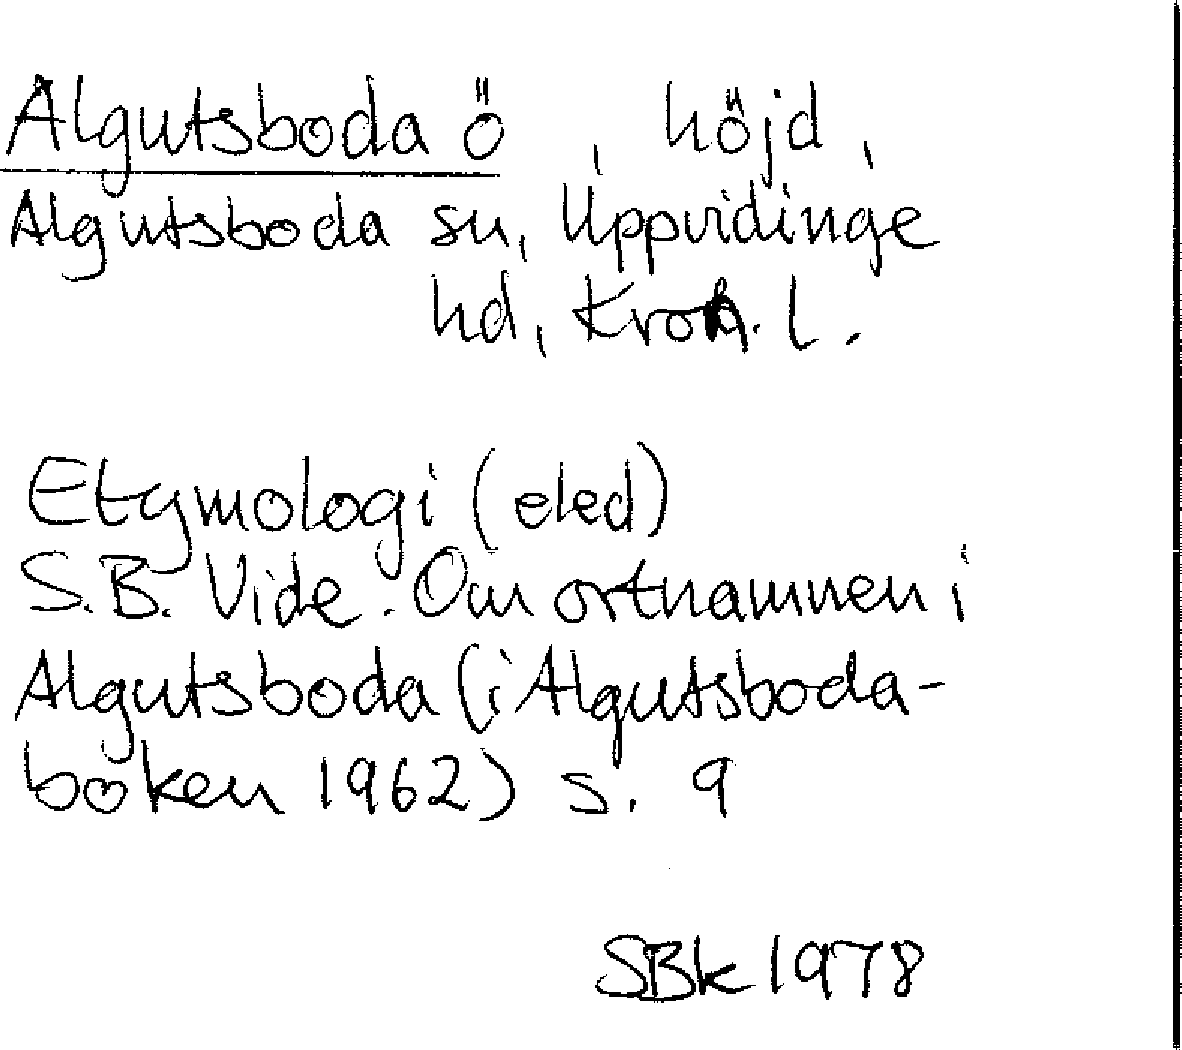 Algutsboda ö , höjd,
Algutsboda sn, Uppvidinge
hd, Kron. l.
Etymologi (eled)
S.B. Vide. Om ortnamnen i
Algutsboda (i Algutsboda-
boken 1962) s. 9
SBk 1978